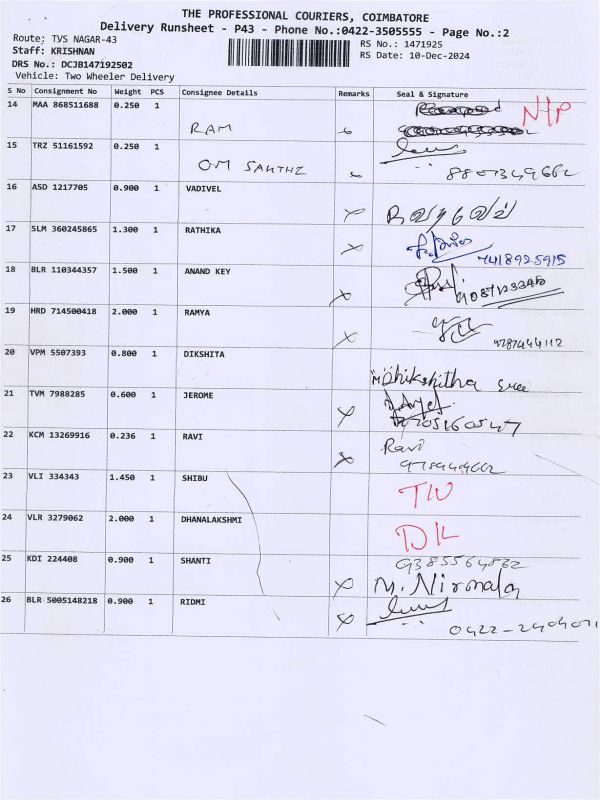 THE PROFESSIONAL COURIERS, COIMBATORE
Delivery Runsheet - P43 - Phone No.:0422-3505555 - Page No.:2
Route: TVS NAGAR-43
RS No.: 1471925
Staff: KRISHNAN
RS Date: 10-Dec-2024
DRS No.: DCJB147192502
Vehicle: Two Wheeler Delivery
S No Consignment No Weight PCS Consignee Details Remarks Seal & Signature
14 MAA 868511688 0.250 1 RAM N/P
15 TRZ 51161592 0.250 1 OM SAKTHI
16 ASD 1217705 0.900 1 VADIVEL
17 SLM 360245865 1.300 1 RATHIKA 7418925915
18 BLR 110344357 1.500 1 ANAND KEY
19 HRD 714500418 2.000 1 RAMYA
20 VPM 5507393 0.800 1 DIKSHITA Dhikshitha
21 TVM 7988285 0.600 1 JEROME
22 KCM 13269916 0.236 1 RAVI Ravi
23 VLI 334343 1.450 1 SHIBU
24 VLR 3279062 2.000 1 DHANALAKSHMI D/L
25 KDI 224408 0.900 1 SHANTI M. Nirmala
26 BLR 5005148218 0.900 1 RIDMI